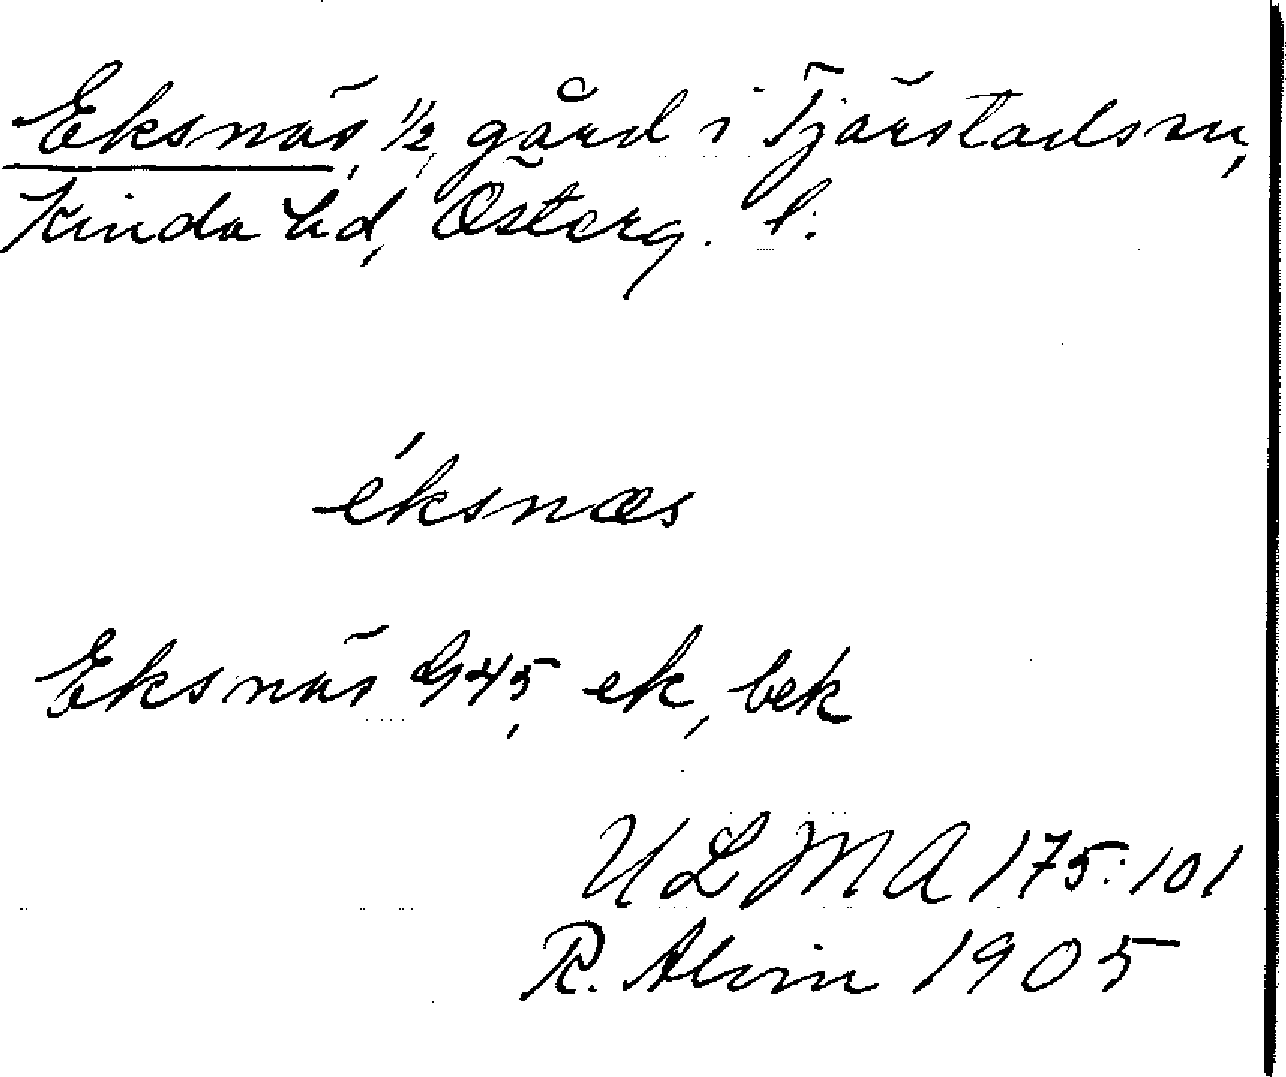 Eksnäs, ½, gård i Tjärstads sn,
Kinda hd, Österg. l:
éksnæs
Eksnäs G45, ek, bek
ULMA 175:101
R. Alvin 1905